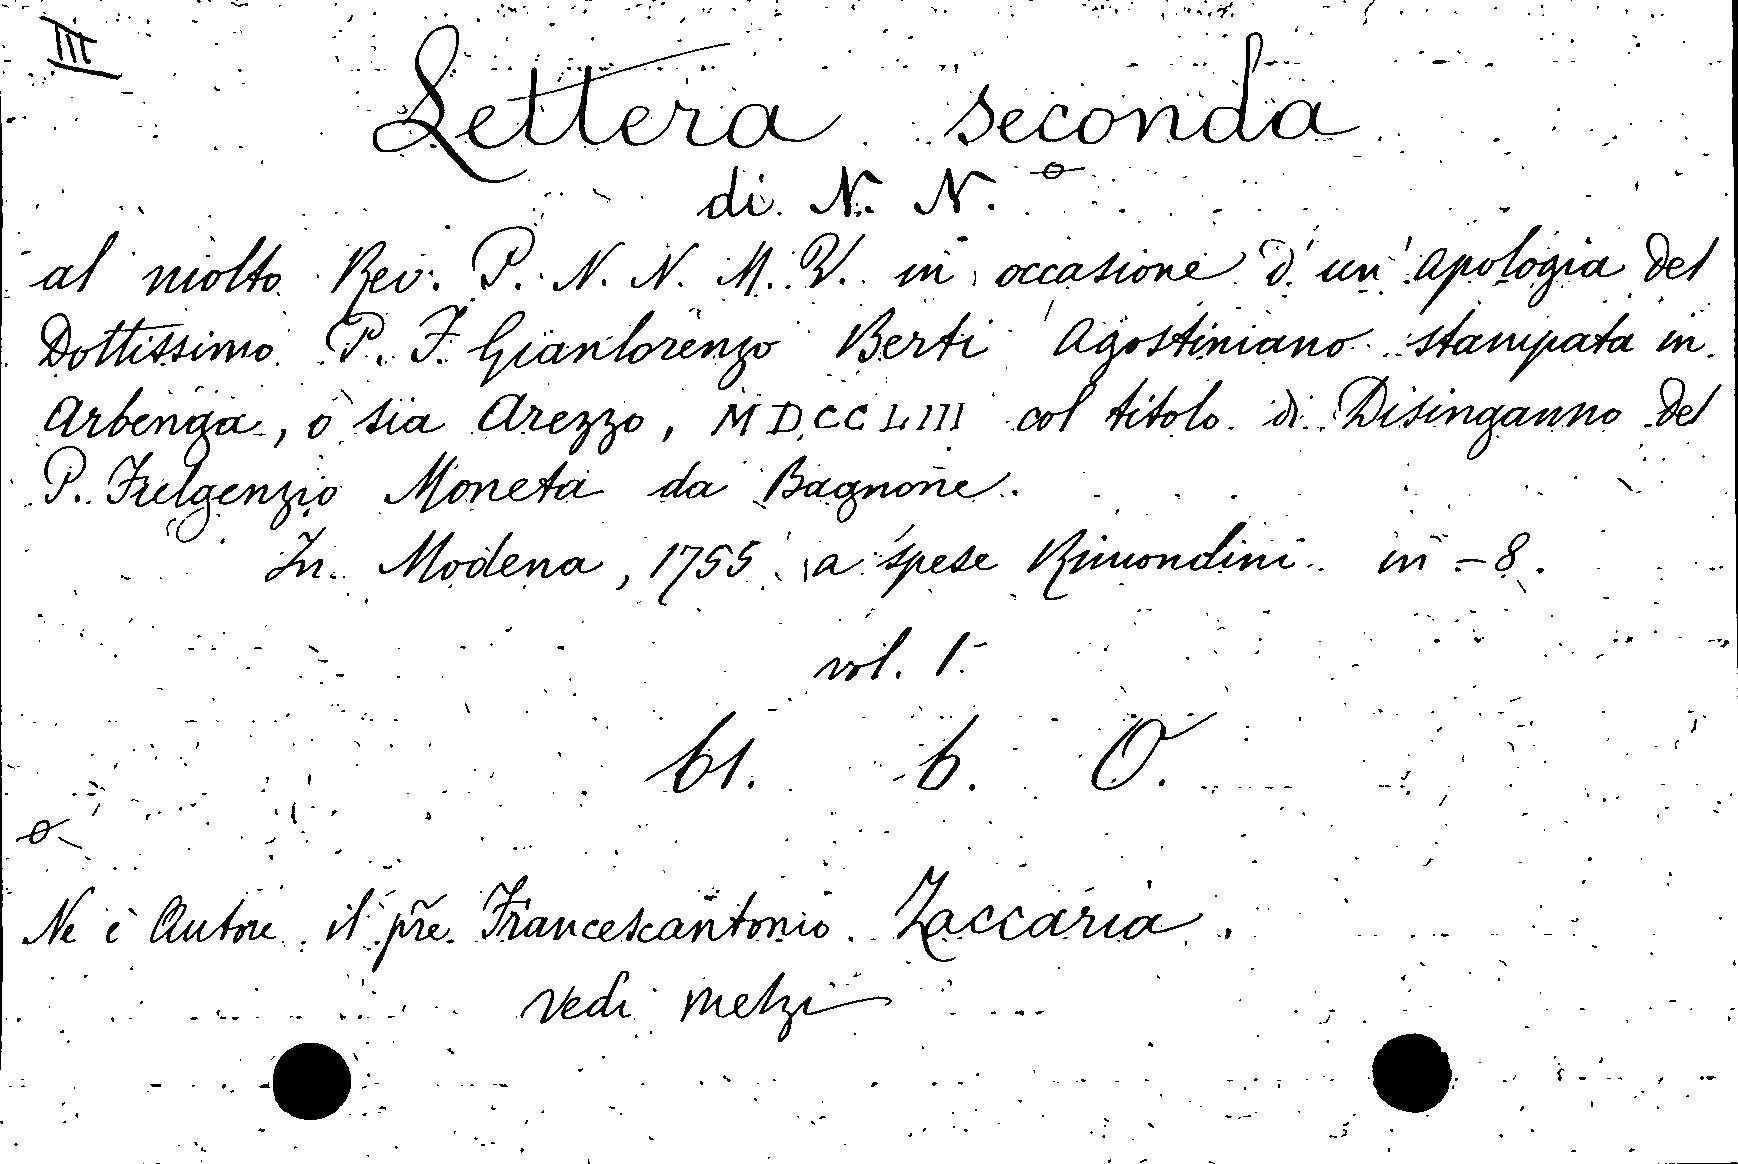 III
Lettera seconda
di N. N.
al molto Rev. P. N. N. M. V. in occasione d'un'apologia del
Dottissimo P. F. Gianlorenzo Berti Agostiniano stampata in
Arbenga, o sia Arezzo, MDCCLIII col titolo di Disinganno del
P. Fulgenzio Moneta da Bagnone.
In Modena, 1755 a spese Rimondini in-8.
vol. 1.
61. 6. O.
Ne è Autore il pre Francescantonio Zaccaria.
vedi Melzi